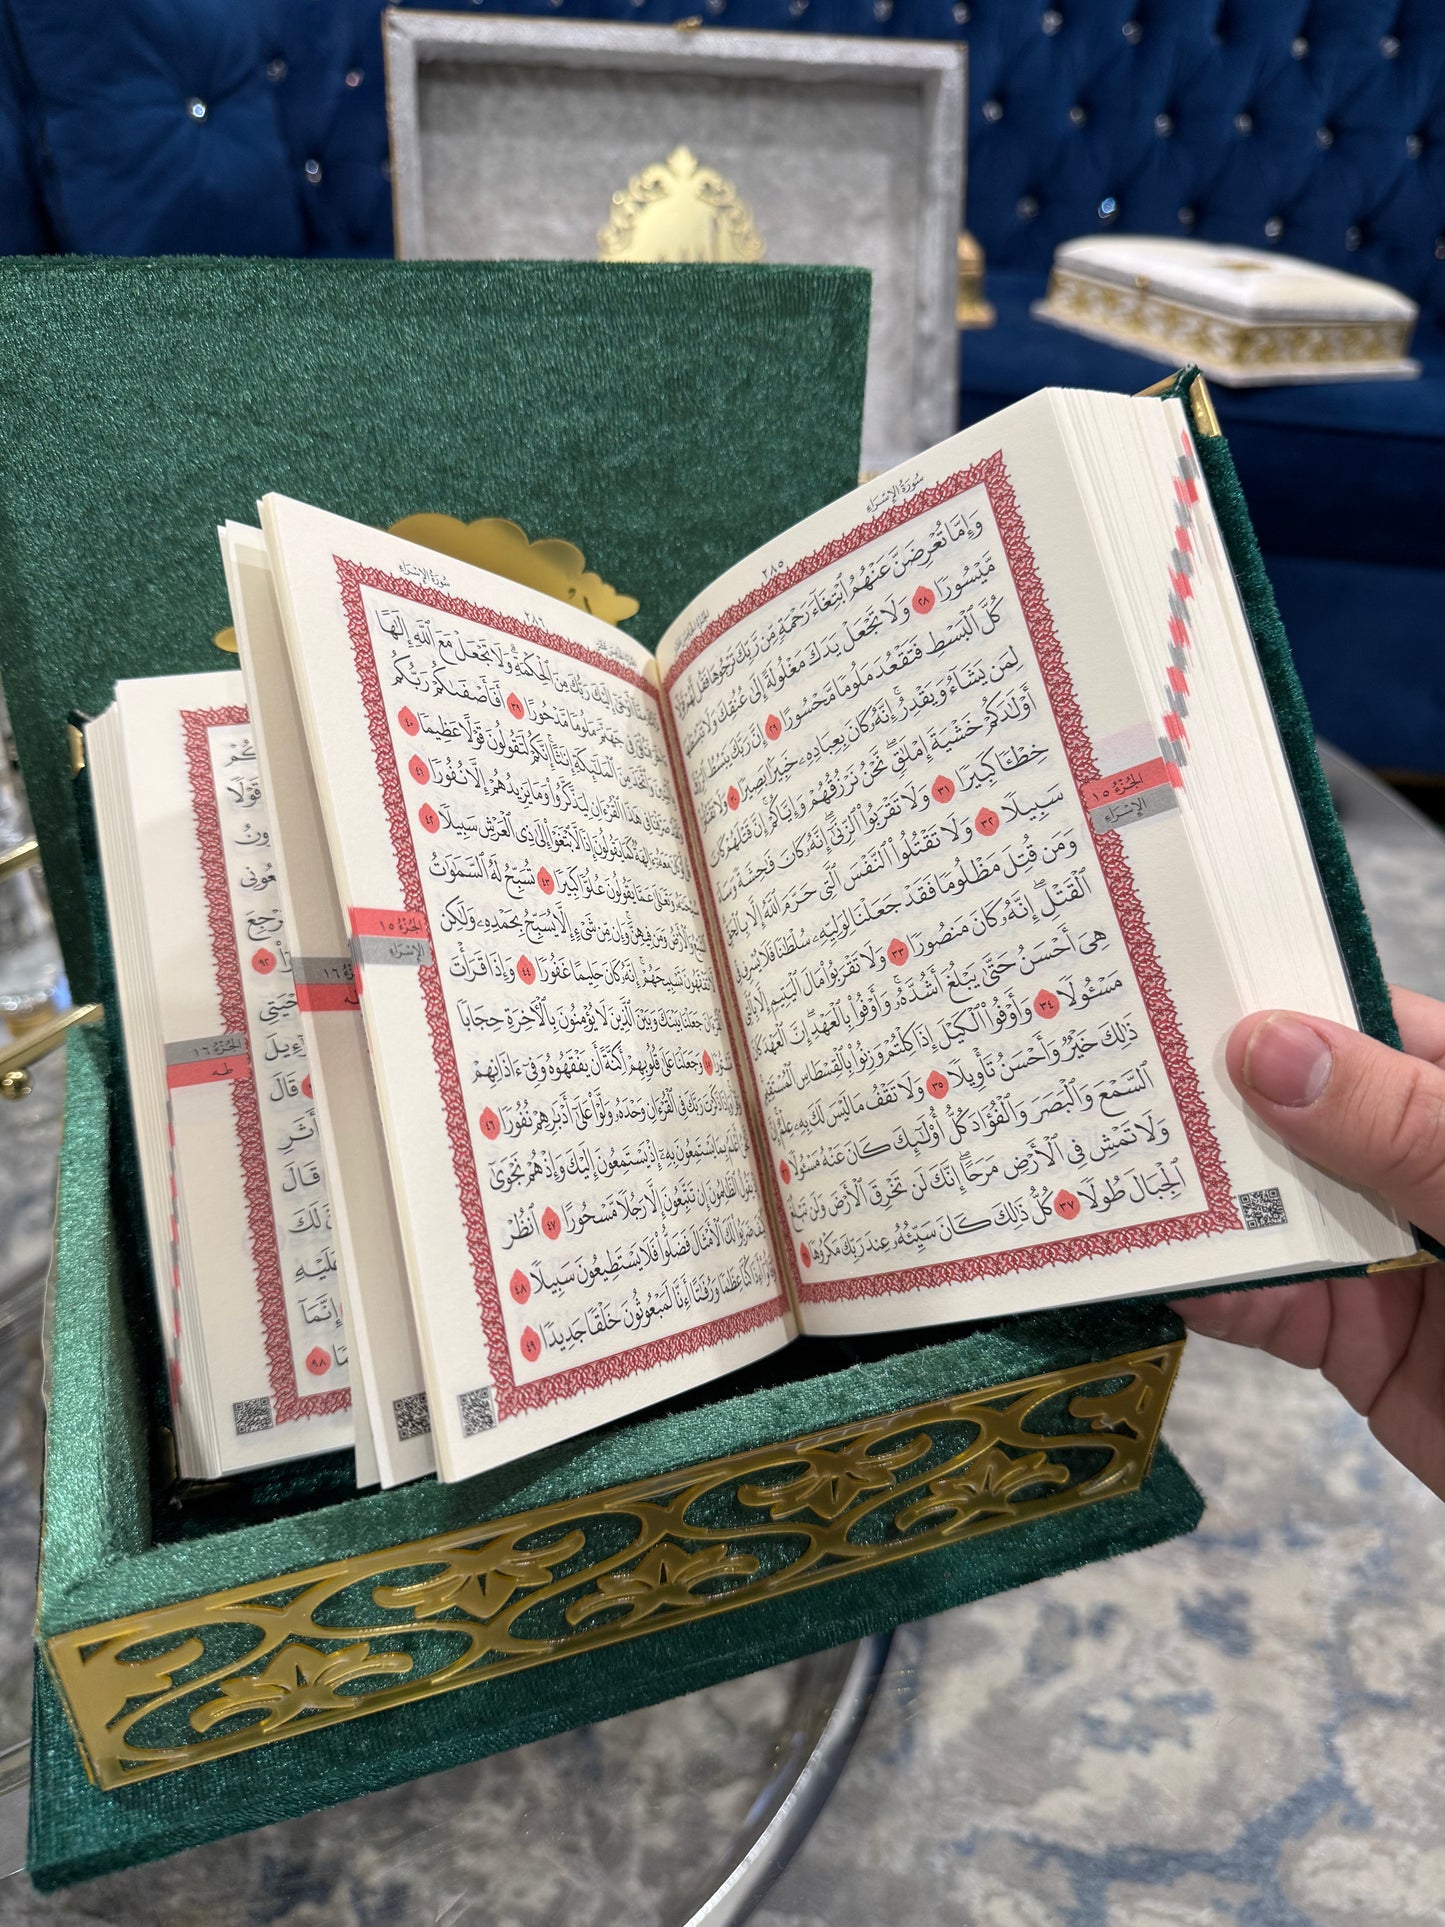 سُورَةُ الإِسْرَاءِ
٢٨٥
وَإِمَّا تُعْرِضَنَّ عَنْهُمُ ٱبْتِغَآءَ رَحْمَةٍ مِّن رَّبِّكَ تَرْجُوهَا فَقُل لَّهُمْ قَوْلًا
مَّيْسُورًا ٢٨ وَلَا تَجْعَلْ يَدَكَ مَغْلُولَةً إِلَىٰ عُنُقِكَ وَلَا تَبْسُطْهَا
كُلَّ ٱلْبَسْطِ فَتَقْعُدَ مَلُومًا مَّحْسُورًا ٢٩ إِنَّ رَبَّكَ يَبْسُطُ ٱلرِّزْقَ
لِمَن يَشَآءُ وَيَقْدِرُ إِنَّهُۥ كَانَ بِعِبَادِهِۦ خَبِيرًۢا بَصِيرًا ٣٠ وَلَا تَقْتُلُوٓا۟
أَوْلَٰدَكُمْ خَشْيَةَ إِمْلَٰقٍ نَّحْنُ نَرْزُقُهُمْ وَإِيَّاكُمْ إِنَّ قَتْلَهُمْ كَانَ
خِطْـًٔا كَبِيرًا ٣١ وَلَا تَقْرَبُوا۟ ٱلزِّنَىٰٓ إِنَّهُۥ كَانَ فَٰحِشَةً وَسَآءَ
سَبِيلًا ٣٢ وَلَا تَقْتُلُوا۟ ٱلنَّفْسَ ٱلَّتِى حَرَّمَ ٱللَّهُ إِلَّا بِٱلْحَقِّ
وَمَن قُتِلَ مَظْلُومًا فَقَدْ جَعَلْنَا لِوَلِيِّهِۦ سُلْطَٰنًا فَلَا يُسْرِف فِّى
ٱلْقَتْلِ إِنَّهُۥ كَانَ مَنصُورًا ٣٣ وَلَا تَقْرَبُوا۟ مَالَ ٱلْيَتِيمِ إِلَّا بِٱلَّتِى
هِىَ أَحْسَنُ حَتَّىٰ يَبْلُغَ أَشُدَّهُۥ وَأَوْفُوا۟ بِٱلْعَهْدِ إِنَّ ٱلْعَهْدَ كَانَ
مَسْـُٔولًا ٣٤ وَأَوْفُوا۟ ٱلْكَيْلَ إِذَا كِلْتُمْ وَزِنُوا۟ بِٱلْقِسْطَاسِ ٱلْمُسْتَقِيمِ
ذَٰلِكَ خَيْرٌ وَأَحْسَنُ تَأْوِيلًا ٣٥ وَلَا تَقْفُ مَا لَيْسَ لَكَ بِهِۦ عِلْمٌ إِنَّ
ٱلسَّمْعَ وَٱلْبَصَرَ وَٱلْفُؤَادَ كُلُّ أُو۟لَٰٓئِكَ كَانَ عَنْهُ مَسْـُٔولًا
وَلَا تَمْشِ فِى ٱلْأَرْضِ مَرَحًا إِنَّكَ لَن تَخْرِقَ ٱلْأَرْضَ وَلَن تَبْلُغَ
ٱلْجِبَالَ طُولًا ٣٧ كُلُّ ذَٰلِكَ كَانَ سَيِّئُهُۥ عِندَ رَبِّكَ مَكْرُوهًا
الجُزْءُ ١٥
الإِسْرَاءِ
سُورَةُ الإِسْرَاءِ
٢٨٦
أَوْحَىٰٓ إِلَيْكَ رَبُّكَ مِنَ ٱلْحِكْمَةِ وَلَا تَجْعَلْ مَعَ ٱللَّهِ إِلَٰهًا
فِى جَهَنَّمَ مَلُومًا مَّدْحُورًا ٣٩ أَفَأَصْفَىٰكُمْ رَبُّكُم
وَٱتَّخَذَ مِنَ ٱلْمَلَٰٓئِكَةِ إِنَٰثًا إِنَّكُمْ لَتَقُولُونَ قَوْلًا عَظِيمًا ٤٠
صَرَّفْنَا فِى هَٰذَا ٱلْقُرْءَانِ لِيَذَّكَّرُوا۟ وَمَا يَزِيدُهُمْ إِلَّا نُفُورًا ٤١
كَانَ مَعَهُۥٓ ءَالِهَةٌ كَمَا يَقُولُونَ إِذًا لَّٱبْتَغَوْا۟ إِلَىٰ ذِى ٱلْعَرْشِ سَبِيلًا ٤٢
وَتَعَٰلَىٰ عَمَّا يَقُولُونَ عُلُوًّا كَبِيرًا ٤٣ تُسَبِّحُ لَهُ ٱلسَّمَٰوَٰتُ
وَٱلْأَرْضُ وَمَن فِيهِنَّ وَإِن مِّن شَىْءٍ إِلَّا يُسَبِّحُ بِحَمْدِهِۦ وَلَٰكِن
لَّا تَفْقَهُونَ تَسْبِيحَهُمْ إِنَّهُۥ كَانَ حَلِيمًا غَفُورًا ٤٤ وَإِذَا قَرَأْتَ
جَعَلْنَا بَيْنَكَ وَبَيْنَ ٱلَّذِينَ لَا يُؤْمِنُونَ بِٱلْأَخِرَةِ حِجَابًا
وَجَعَلْنَا عَلَىٰ قُلُوبِهِمْ أَكِنَّةً أَن يَفْقَهُوهُ وَفِىٓ ءَاذَانِهِمْ
ذَكَرْتَ رَبَّكَ فِى ٱلْقُرْءَانِ وَحْدَهُۥ وَلَّوْا۟ عَلَىٰٓ أَدْبَٰرِهِمْ نُفُورًا ٤٦
أَعْلَمُ بِمَا يَسْتَمِعُونَ بِهِۦٓ إِذْ يَسْتَمِعُونَ إِلَيْكَ وَإِذْ هُمْ نَجْوَىٰٓ
يَقُولُ ٱلظَّٰلِمُونَ إِن تَتَّبِعُونَ إِلَّا رَجُلًا مَّسْحُورًا ٤٧ ٱنظُرْ
كَيْفَ ضَرَبُوا۟ لَكَ ٱلْأَمْثَالَ فَضَلُّوا۟ فَلَا يَسْتَطِيعُونَ سَبِيلًا ٤٨
كُنَّا عِظَٰمًا وَرُفَٰتًا أَءِنَّا لَمَبْعُوثُونَ خَلْقًا جَدِيدًا ٤٩
الجُزْءُ ١٥
الإِسْرَاءِ
١٦
الجُزْءُ ١٦
طه
٩٢
قَالَ
أَثَرِ
قَالَ
لَكَ
إِنَّمَآ
٩٨